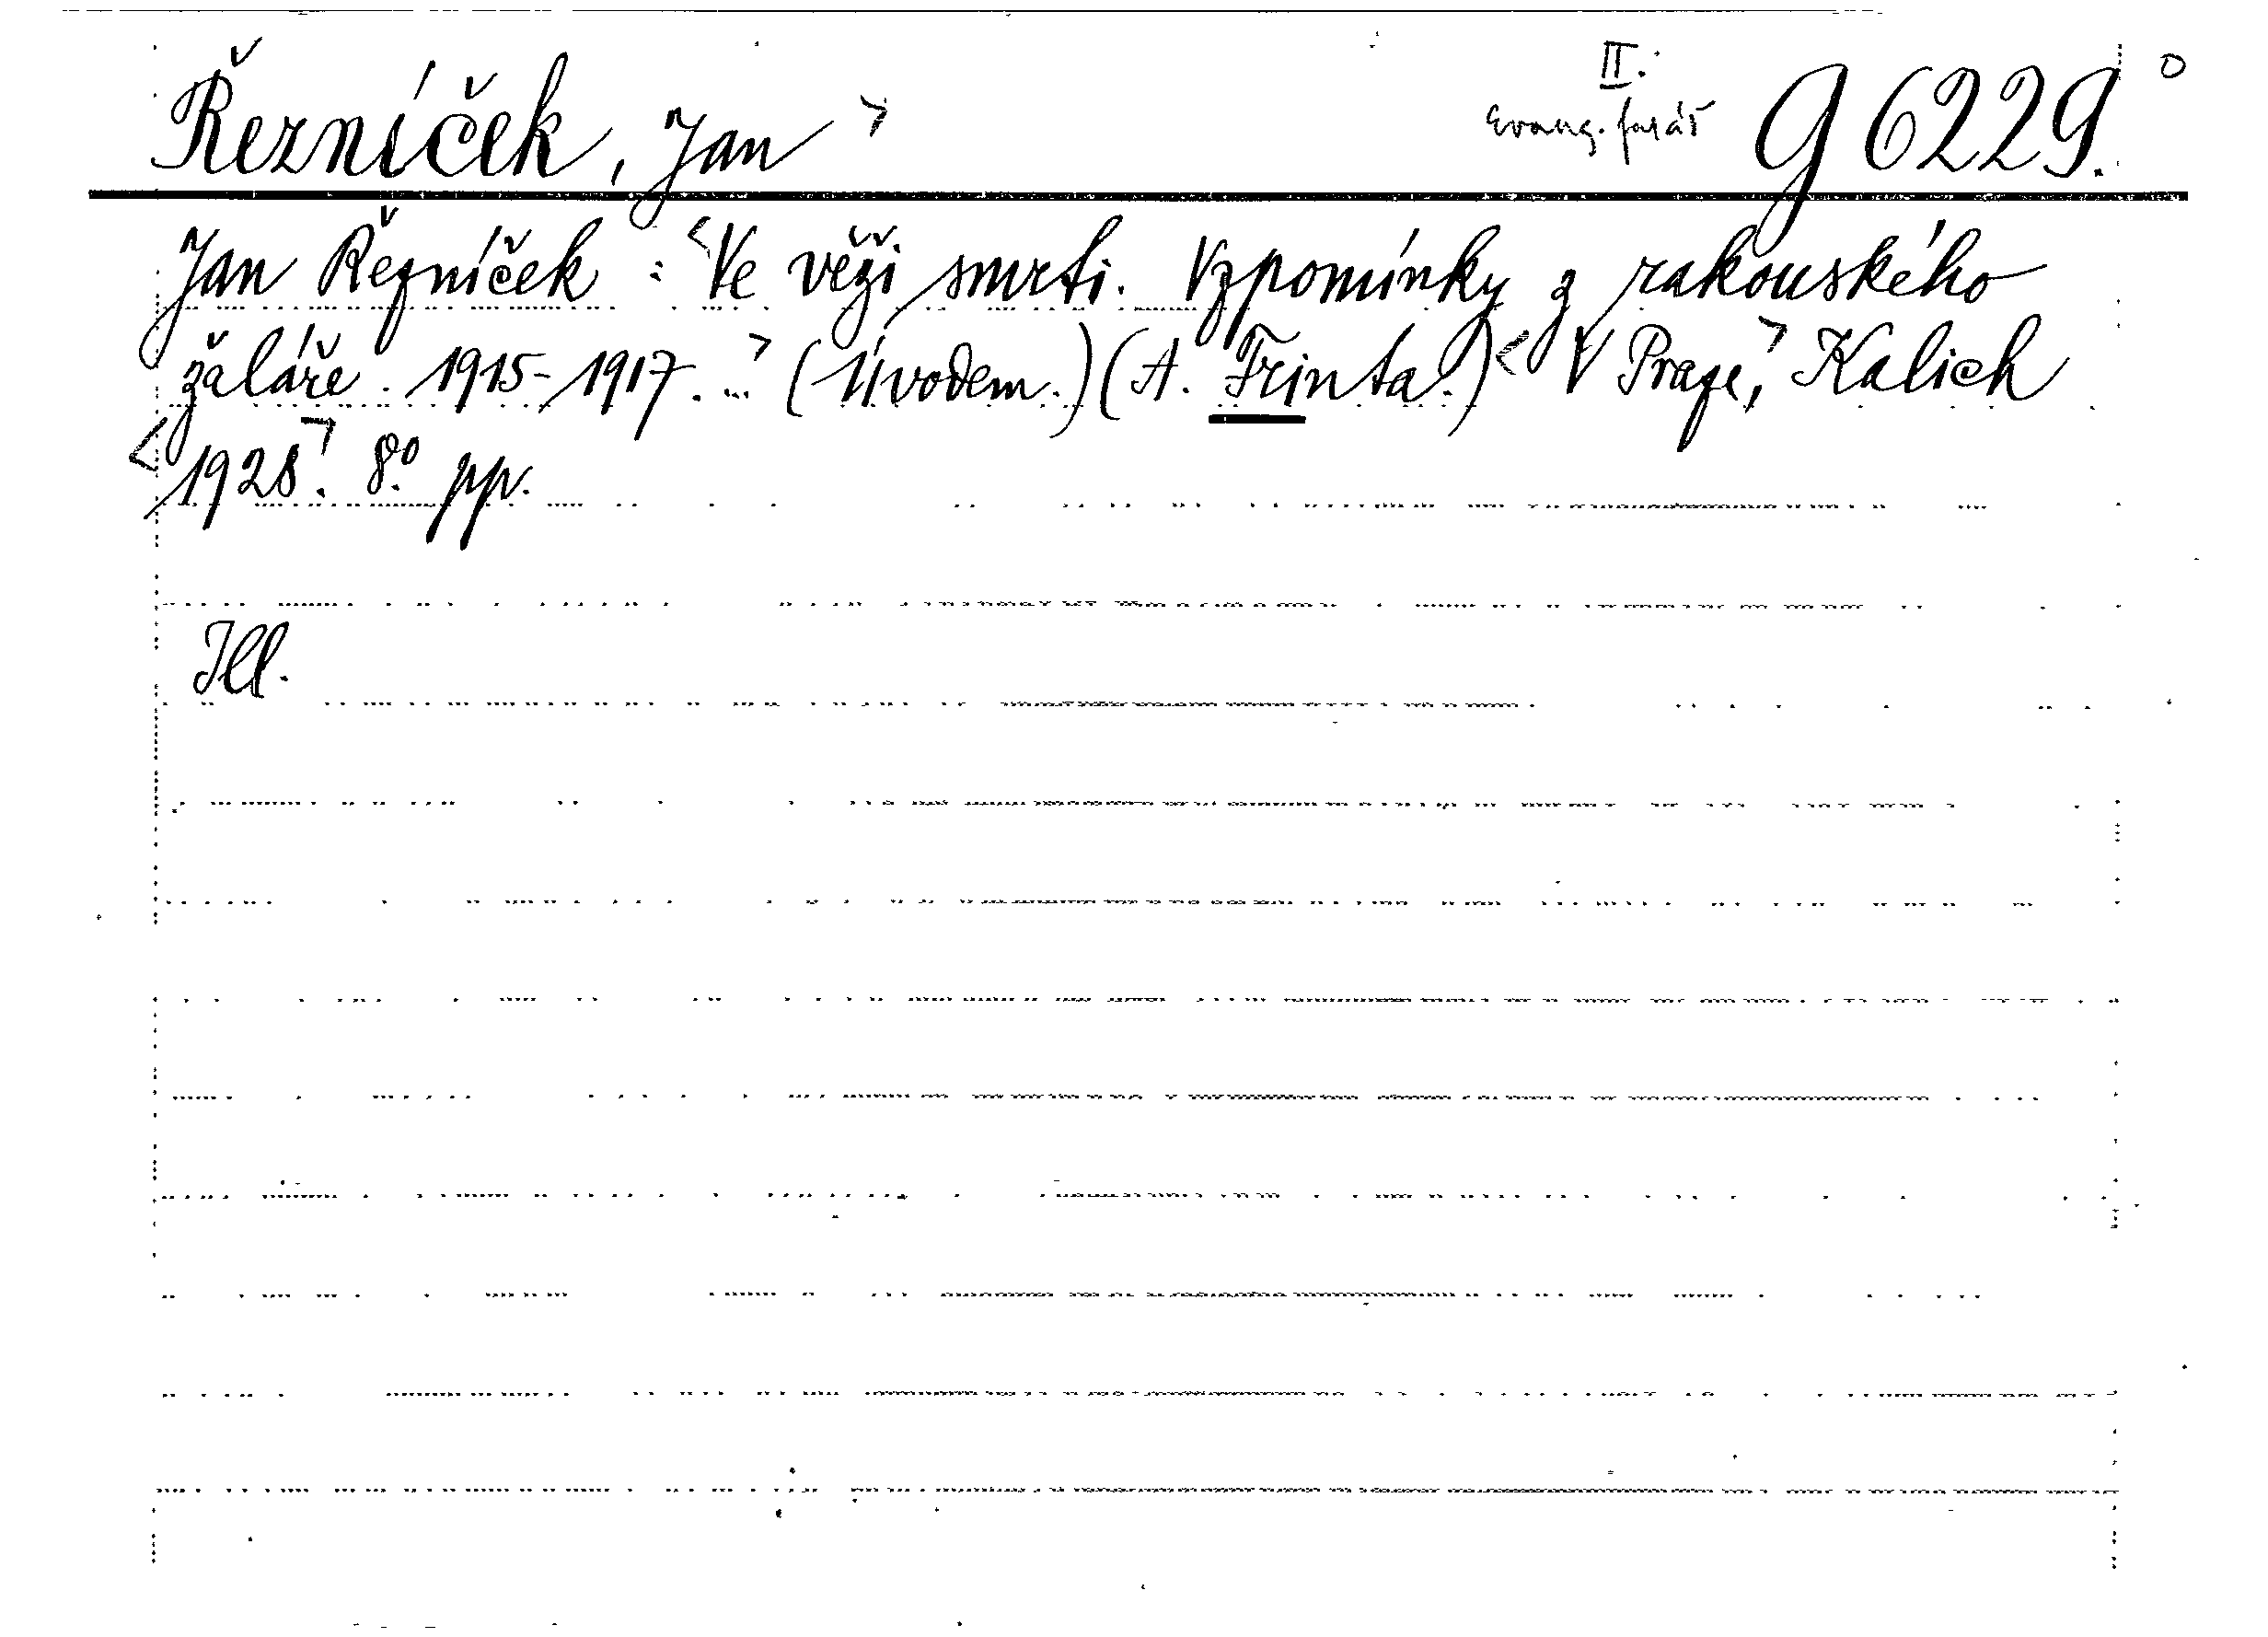 Řezníček, Jan > II. Evang. farář g 6229. o
Jan Řezníček : <Ve věži smrti. Vzpomínky z rakouského
žaláře. 1915-1917. ..> (Úvodem.) (A. Frinta.) < V Praze,> Kalich
<1928>. 8.° pp.
Ill.